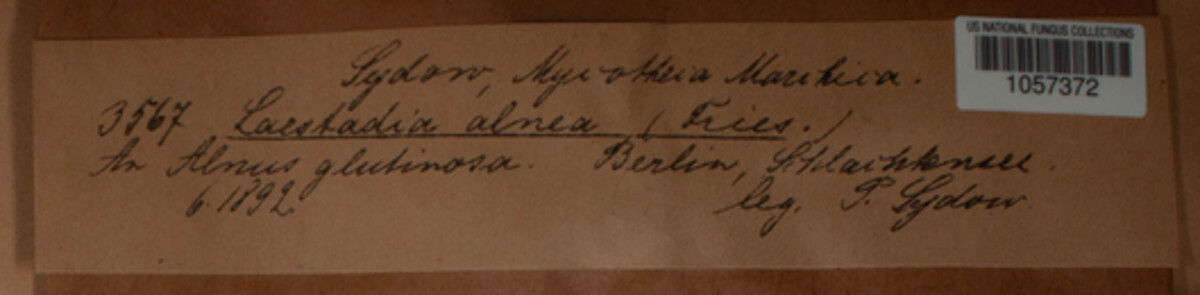 US NATIONAL FUNGUS COLLECTIONS
1057372
Sydow, Mycotheca Marchica.
3567 Laestadia alnea (Fries.)
An Alnus glutinosa. Berlin, Schlachtensee.
6. 1892. leg. P. Sydow.